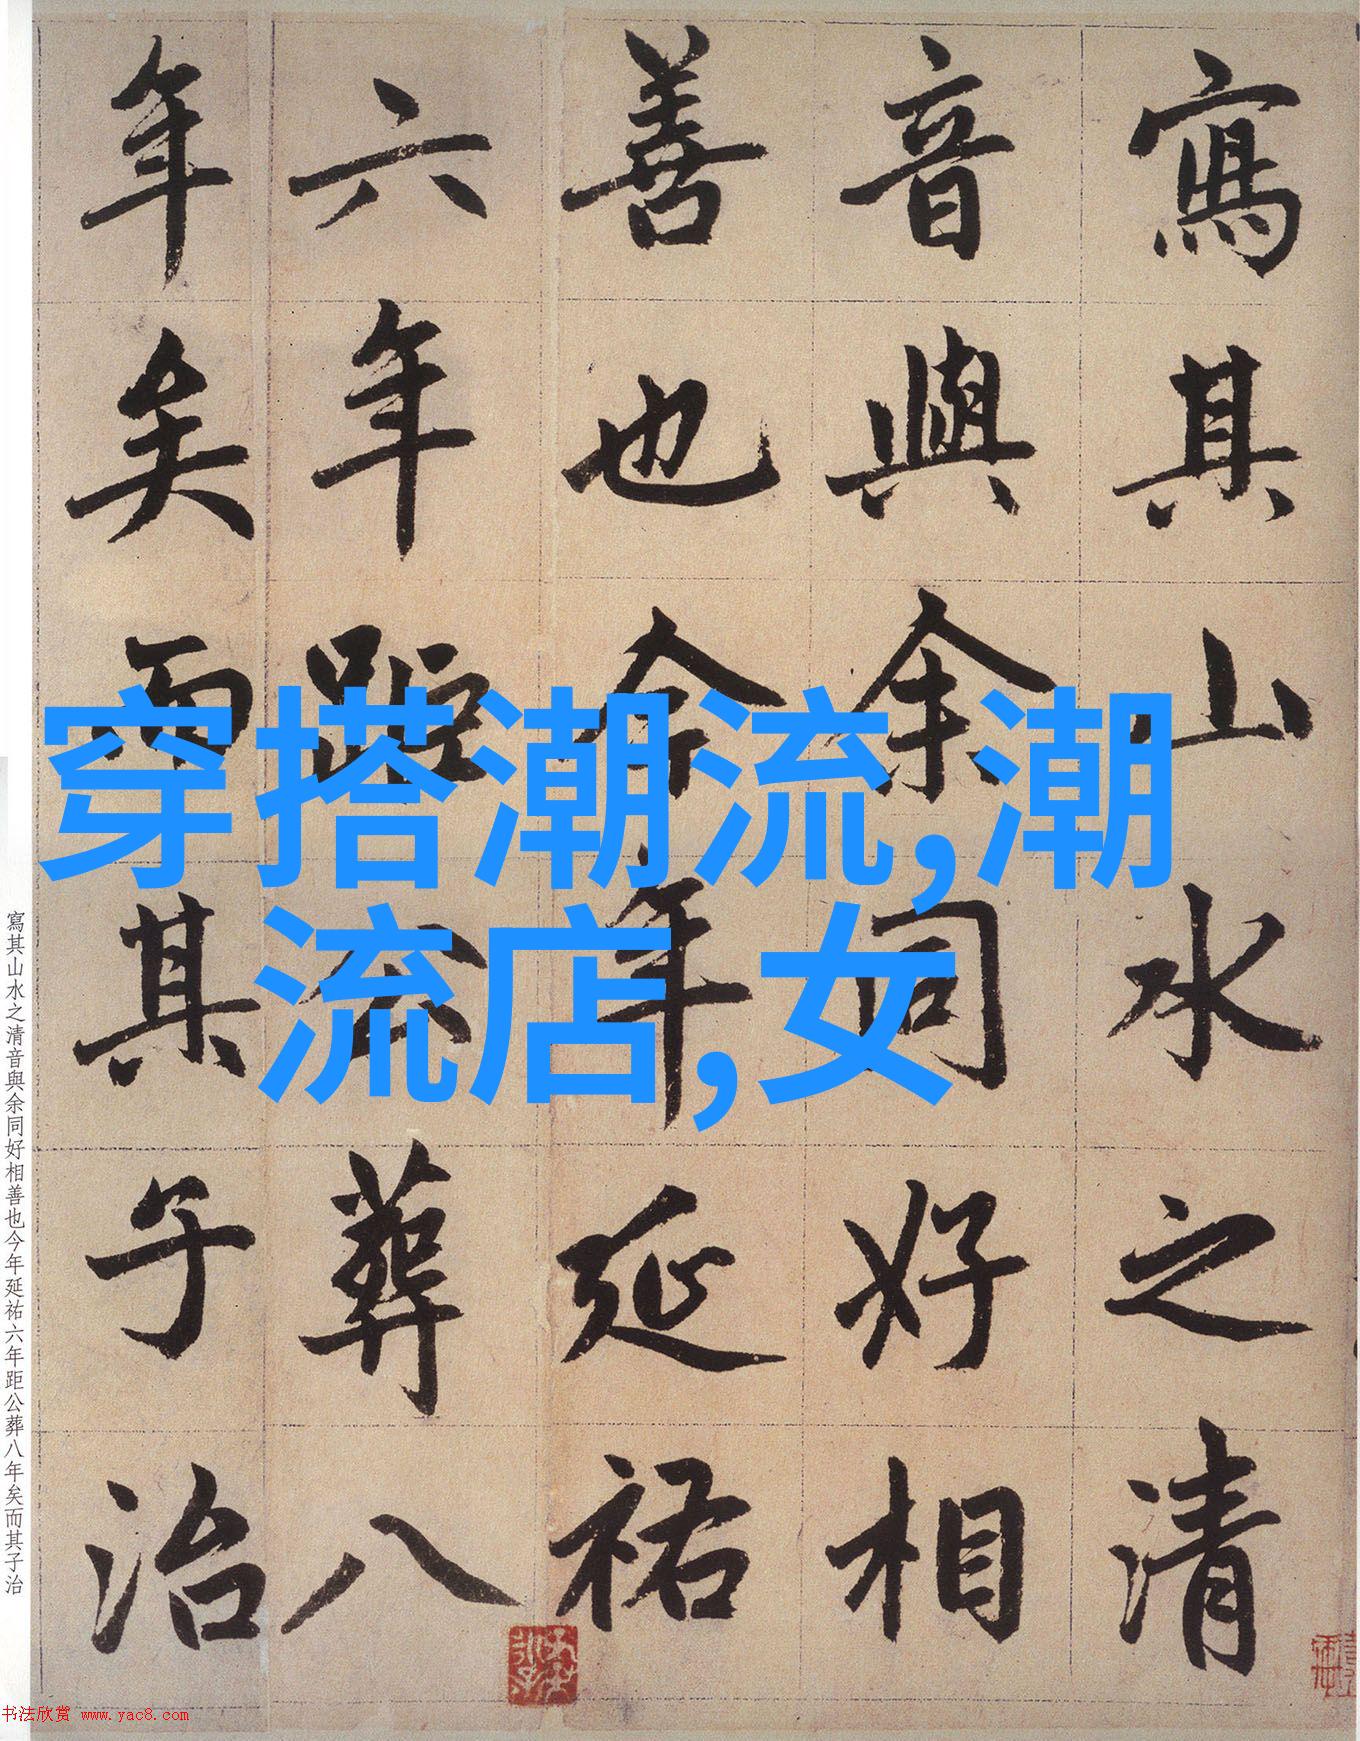 寫其山水之清
音與余同好相
善也今年延祐
六年距公葬八
年矣而其子治
穿搭潮流,潮
流店,女
寫其山水之清音與余同好相善也今年延祐六年距公葬八年矣而其子治
书法欣赏 www.yac8.com